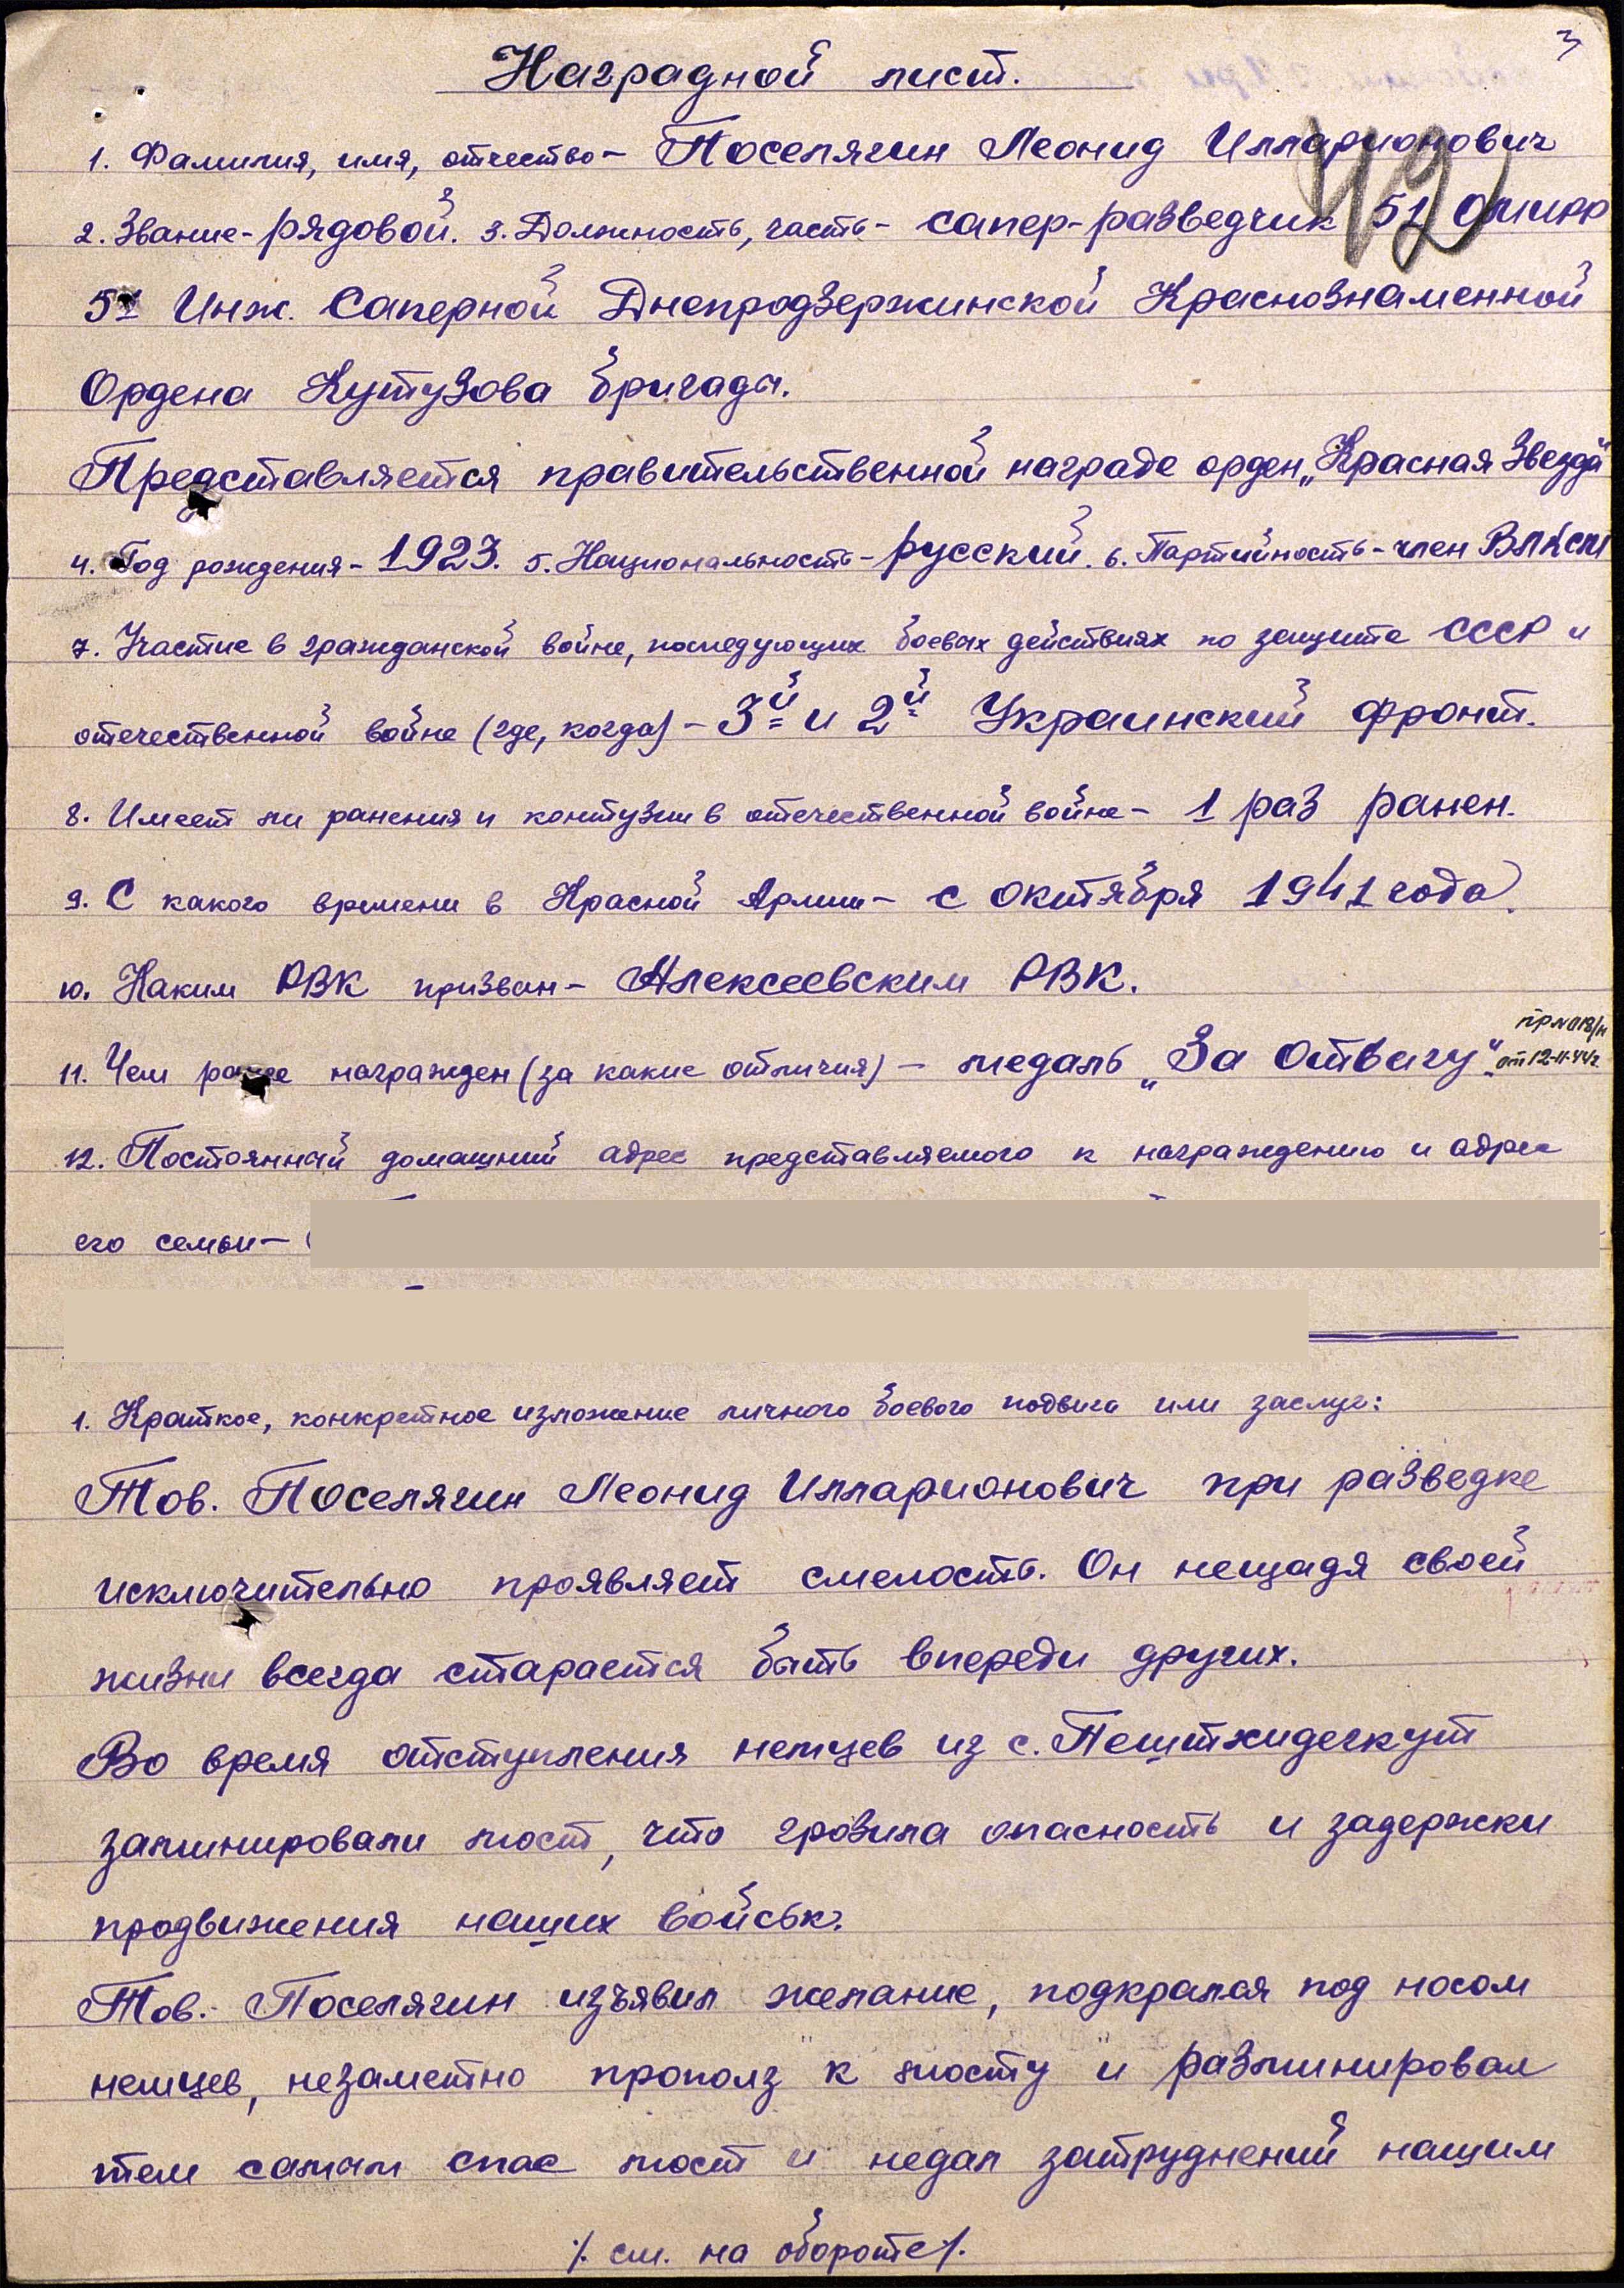 3
Наградной лист.
42
1. Фамилия, имя, отчество - Поселягин Леонид Илларионович
2. Звание - рядовой. 3. Должность, часть - сапер-разведчик 51 омирр
5й Инж. Саперной Днепродзержинской Краснознаменной
Ордена Кутузова бригады.
Представляется правительственной награде орден „Красная Звезда"
4. Год рождения - 1923. 5. Национальность - русский. 6. Партийность - член ВЛКСМ
7. Участие в гражданской войне, последующих боевых действиях по защите СССР и
отечественной войне (где, когда) - 3й и 2й Украинский фронт.
8. Имеет ли ранения и контузии в отечественной войне - 1 раз ранен.
9. С какого времени в Красной Армии - с октября 1941 года.
10. Каким РВК призван - Алексеевским РВК.
пр №018/н
11. Чем ранее награжден (за какие отличия) - медаль „За Отвагу" от 12-11-44 г.
12. Постоянный домашний адрес представляемого к награждению и адрес
его семьи -
1. Краткое, конкретное изложение личного боевого подвига или заслуг:
Тов. Поселягин Леонид Илларионович при разведке
исключительно проявляет смелость. Он нещадя своей
жизни всегда старается быть впереди других.
Во время отступления немцев из с. Пештхидегкут
заминировали мост, что грозила опасность и задержки
продвижения наших войськ.
Тов. Поселягин изъявил желание, подкрался под носом
немцев, незаметно прополз к мосту и разминировал
тем самым спас мост и недал затруднений нашим
./. см. на обороте ./.